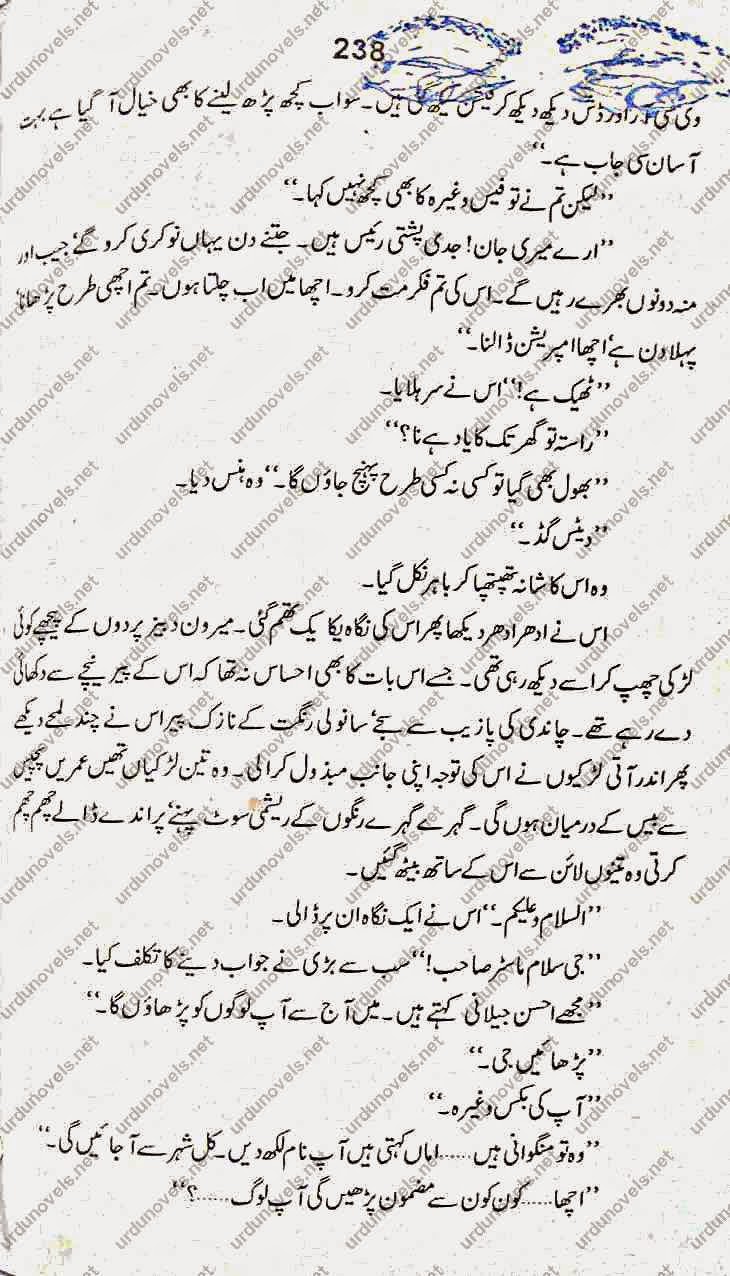 238
وی سی آر اور ڈش دیکھ دیکھ کر فیشن سیکھ گئی ہیں۔ سو اب کچھ پڑھ لینے کا بھی خیال آ گیا ہے بہت
آسان سی جاب ہے۔‘‘
’’لیکن تم نے تو فیس وغیرہ کا بھی کچھ نہیں کہا۔‘‘
’’ارے میری جان! جدی پشتی رئیس ہیں۔ جتنے دن یہاں نوکری کرو گے‘ جیب اور
منہ دونوں بھرے رہیں گے۔ اس کی تم فکر مت کرو۔ اچھا میں اب چلتا ہوں۔ تم اچھی طرح پڑھانا‘
پہلا دن ہے‘ اچھا امپریشن ڈالنا۔‘‘
’’ٹھیک ہے!‘‘ اس نے سر ہلایا۔
’’راستہ تو گھر تک کا یاد ہے نا؟‘‘
’’بھول بھی گیا تو کسی نہ کسی طرح پہنچ جاؤں گا۔‘‘ وہ ہنس دیا۔
’’دیٹس گڈ۔‘‘
وہ اس کا شانہ تھپتھپا کر باہر نکل گیا۔
اس نے ادھر ادھر دیکھا پھر اس کی نگاہ یکایک تھم گئی۔ میرون دبیز پردوں کے پیچھے کوئی
لڑکی چھپ کر اسے دیکھ رہی تھی۔ جسے اس بات کا بھی احساس نہ تھا کہ اس کے پیر نیچے سے دکھائی
دے رہے تھے۔ چاندی کی پازیب سے سجے‘ سانولی رنگت کے نازک پیر اس نے چند لمحے دیکھے
پھر اندر آتی لڑکیوں نے اس کی توجہ اپنی جانب مبذول کرا لی۔ وہ تین لڑکیاں تھیں عمریں پچیس
سے بیس کے درمیان ہوں گی۔ گہرے گہرے رنگوں کے ریشمی سوٹ پہنے‘ پراندے ڈالے چھم چھم
کرتی وہ تینوں لائن سے اس کے ساتھ بیٹھ گئیں۔
’’السلام وعلیکم۔‘‘ اس نے ایک نگاہ ان پر ڈالی۔
’’جی سلام ماسٹر صاحب!‘‘ سب سے بڑی نے جواب دینے کا تکلف کیا۔
’’مجھے احسن جیلانی کہتے ہیں۔ میں آج سے آپ لوگوں کو پڑھاؤں گا۔‘‘
’’پڑھائیں جی۔‘‘
’’آپ کی بکس وغیرہ۔‘‘
’’وہ تو منگوانی ہیں......اماں کہتی ہیں آپ نام لکھ دیں۔ کل شہر سے آ جائیں گی۔‘‘
’’اچھا......کون کون سے مضمون پڑھیں گی آپ لوگ......؟‘‘
urdunovels.net